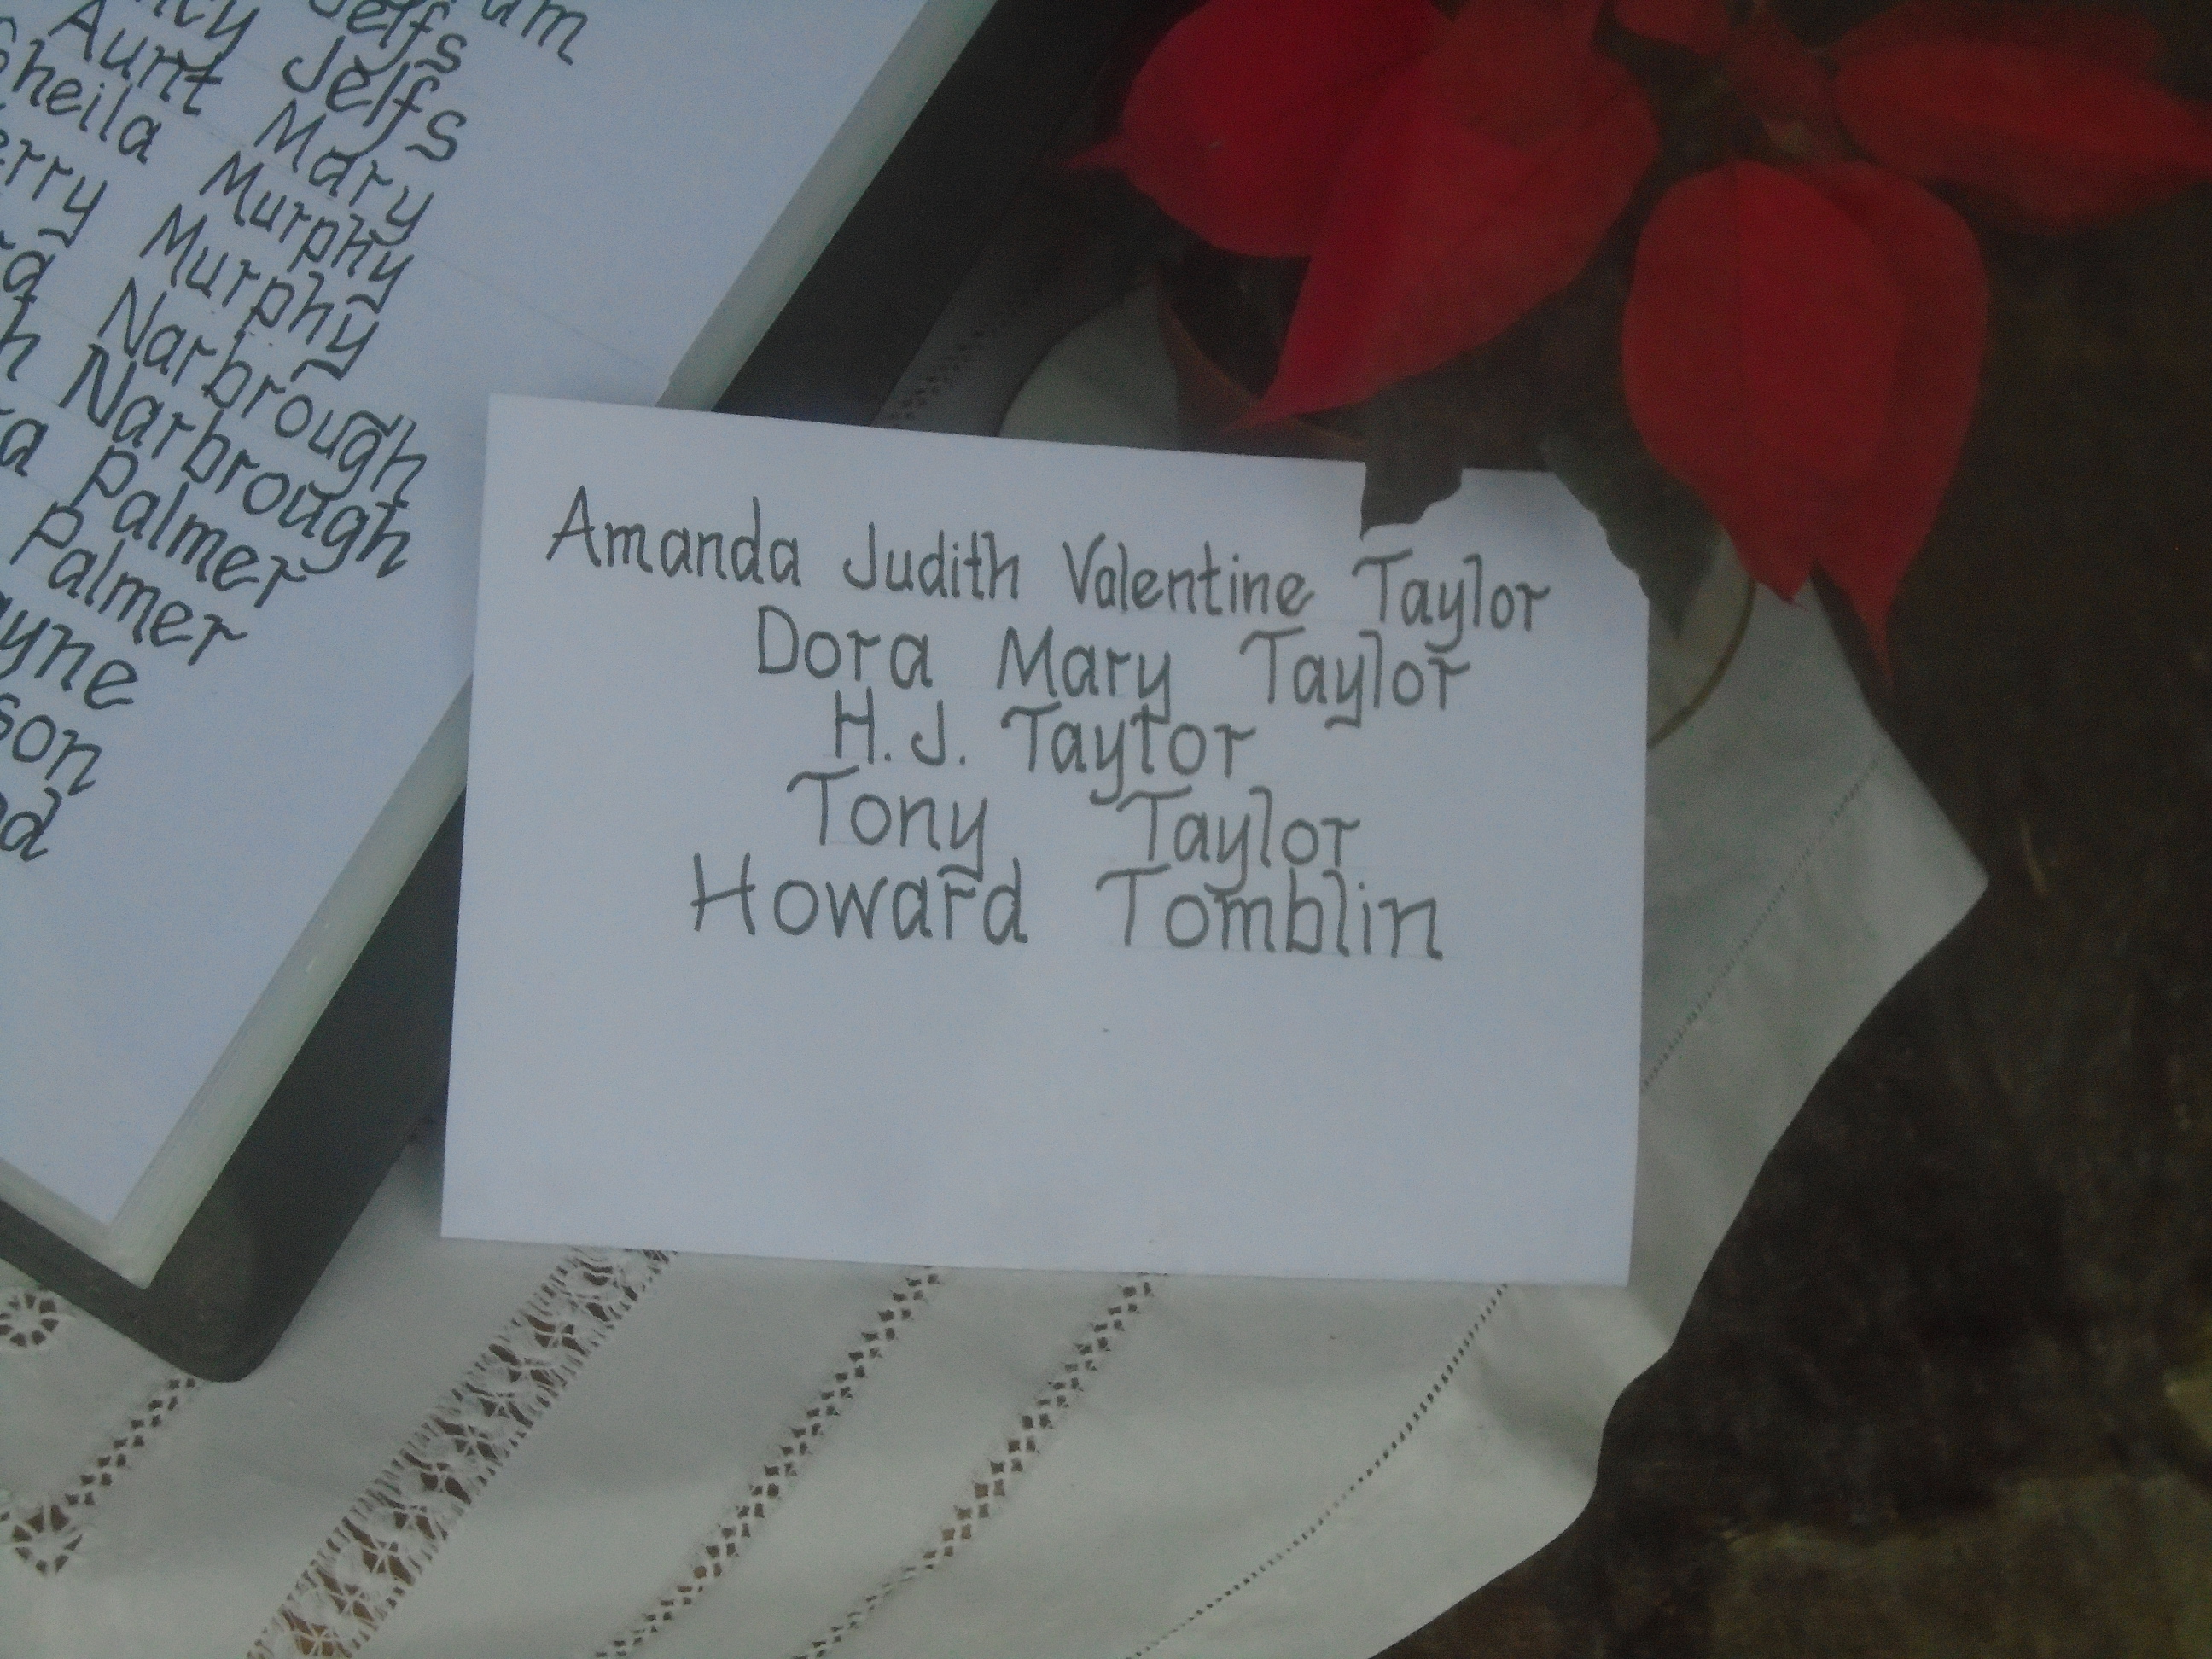 Jelfs
Jelfs
Aunt Mary
Sheila Murphy
Murphy
Narbrough
Narbrough
Palmer
Palmer
Amanda Judith Valentine Taylor
Dora Mary Taylor
H.J. Taylor
Tony Taylor
Howard Tomblin